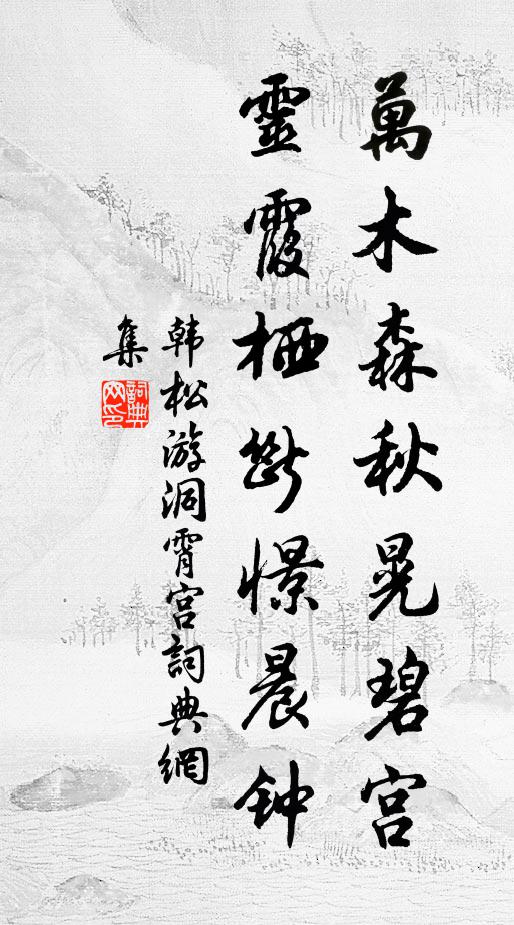 萬木森秋晃碧宫
靈霞栖斷憬晨钟
韩松游洞霄宫詞典網
集
詞典
网印